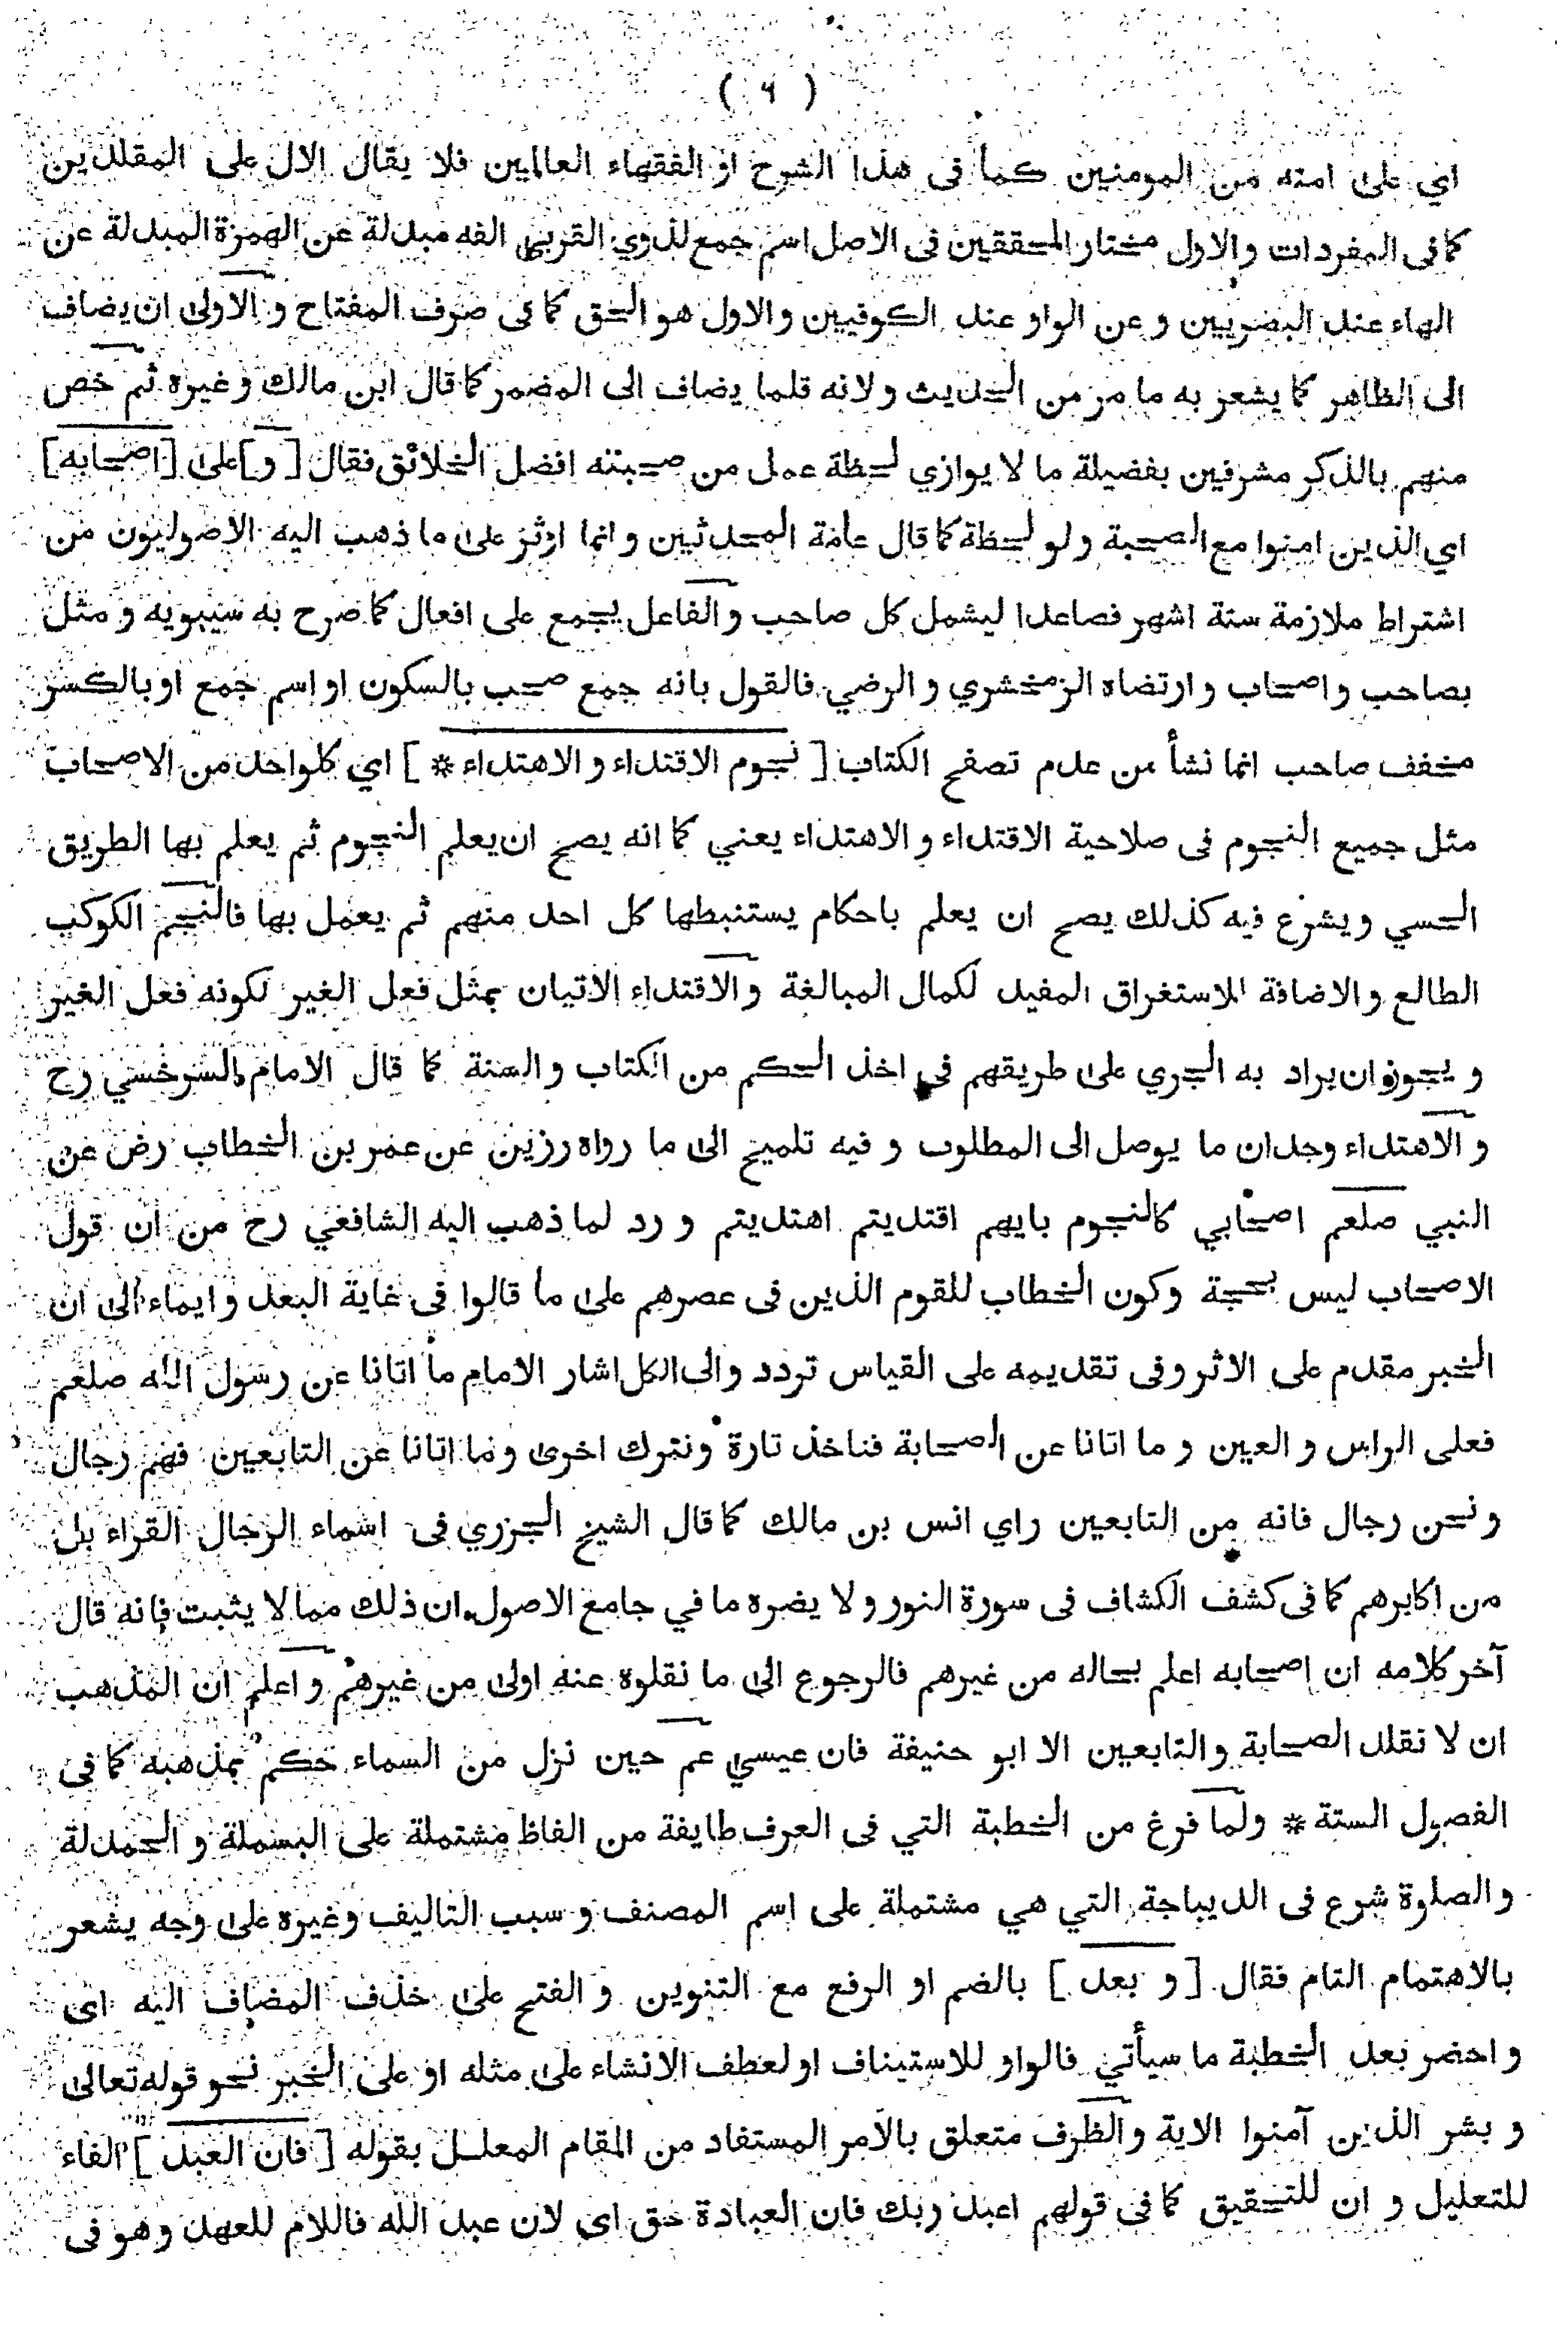 ( ٦ )
اي على امته من المومنين كما فى هذا الشرح او الفقهاء العالمين فلا يقال الال على المقلدين
كما فى المفردات والاول مختار المحققين فى الاصل اسم جمع لذوي القربى الفه مبدلة عن الهمزة المبدلة عن
الهاء عند البصريين و عن الواو عند الكوفيين والاول هو الحق كما فى صرف المفتاح و الاولى ان يضاف
الى الظاهر كما يشعر به ما مر من الحديث ولانه قلما يضاف الى المضمر كما قال ابن مالك وغيره ثم خص
منهم بالذكر مشرفين بفضيلة ما لا يوازي لحظة عمل من صحبته افضل الخلائق فقال [ و ] على [ اصحابه ]
اي الذين امنوا مع الصحبة ولو لحظة كما قال عامة المحدثين وانما اؤثر على ما ذهب اليه الاصوليون من
اشتراط ملازمة ستة اشهر فصاعدا ليشمل كل صاحب و الفاعل يجمع على افعال كما صرح به سيبويه و مثل
بصاحب و اصحاب و ارتضاه الزمخشري و الرضي فالقول بانه جمع صحب بالسكون او اسم جمع او بالكسر
مخفف صاحب انما نشأ من عدم تصفح الكتاب [ نجوم الاقتداء و الاهتداء * ] اي كلواحد من الاصحاب
مثل جميع النجوم فى صلاحية الاقتداء و الاهتداء يعني كما انه يصح ان يعلم النجوم ثم يعلم بها الطريق
الحسي ويشرع فيه كذلك يصح ان يعلم باحكام يستنبطها كل احد منهم ثم يعمل بها فالنجم الكوكب
الطالع والاضافة للاستغراق المفيد لكمال المبالغة والاقتداء الاتيان بمثل فعل الغير لكونه فعل الغير
و يجوز ان يراد به الجري على طريقهم في اخذ الحكم من الكتاب والسنة كما قال الامام السرخسي رح
و الاهتداء وجدان ما يوصل الى المطلوب و فيه تلميح الى ما رواه رزين عن عمر بن الخطاب رض عن
النبي صلعم اصحابي كالنجوم بايهم اقتديتم اهتديتم و رد لما ذهب اليه الشافعي رح من ان قول
الاصحاب ليس بحجة وكون الخطاب للقوم الذين فى عصرهم على ما قالوا فى غاية البعد وايماء الى ان
الخبر مقدم على الاثر وفى تقديمه على القياس تردد والى الكل اشار الامام ما اتانا عن رسول الله صلعم
فعلى الراس و العين و ما اتانا عن الصحابة فناخذ تارة ونترك اخرى وما اتانا عن التابعين فهم رجال
ونحن رجال فانه من التابعين راي انس بن مالك كما قال الشيخ الجزري فى اسماء الرجال القراء بل
من اكابرهم كما فى كشف الكشاف فى سورة النور و لا يضره ما في جامع الاصول ان ذلك مما لا يثبت فانه قال
آخر كلامه ان اصحابه اعلم بحاله من غيرهم فالرجوع الى ما نقلوه عنه اولى من غيرهم و اعلم ان المذهب
ان لا نقلد الصحابة والتابعين الا ابو حنيفة فان عيسي عم حين نزل من السماء حكم بمذهبه كما فى
الفصول الستة * ولما فرغ من الخطبة التي فى العرف طايفة من الفاظ مشتملة على البسملة و الحمدلة
والصلوة شرع فى الديباجة التي هي مشتملة على اسم المصنف و سبب التاليف وغيره على وجه يشعر
بالاهتمام التام فقال [ و بعد ] بالضم او الرفع مع التنوين و الفتح على حذف المضاف اليه اى
واحضر بعد الخطبة ما سيأتي فالواو للاستيناف او لعطف الانشاء على مثله او على الخبر نحو قوله تعالى
و بشر الذين آمنوا الاية والظرف متعلق بالامر المستفاد من المقام المعلل بقوله [ فان العبد ] الفاء
للتعليل و ان للتحقيق كما فى قولهم اعبد ربك فان العبادة حق اي لان عبد الله فاللام للعهد وهو فى